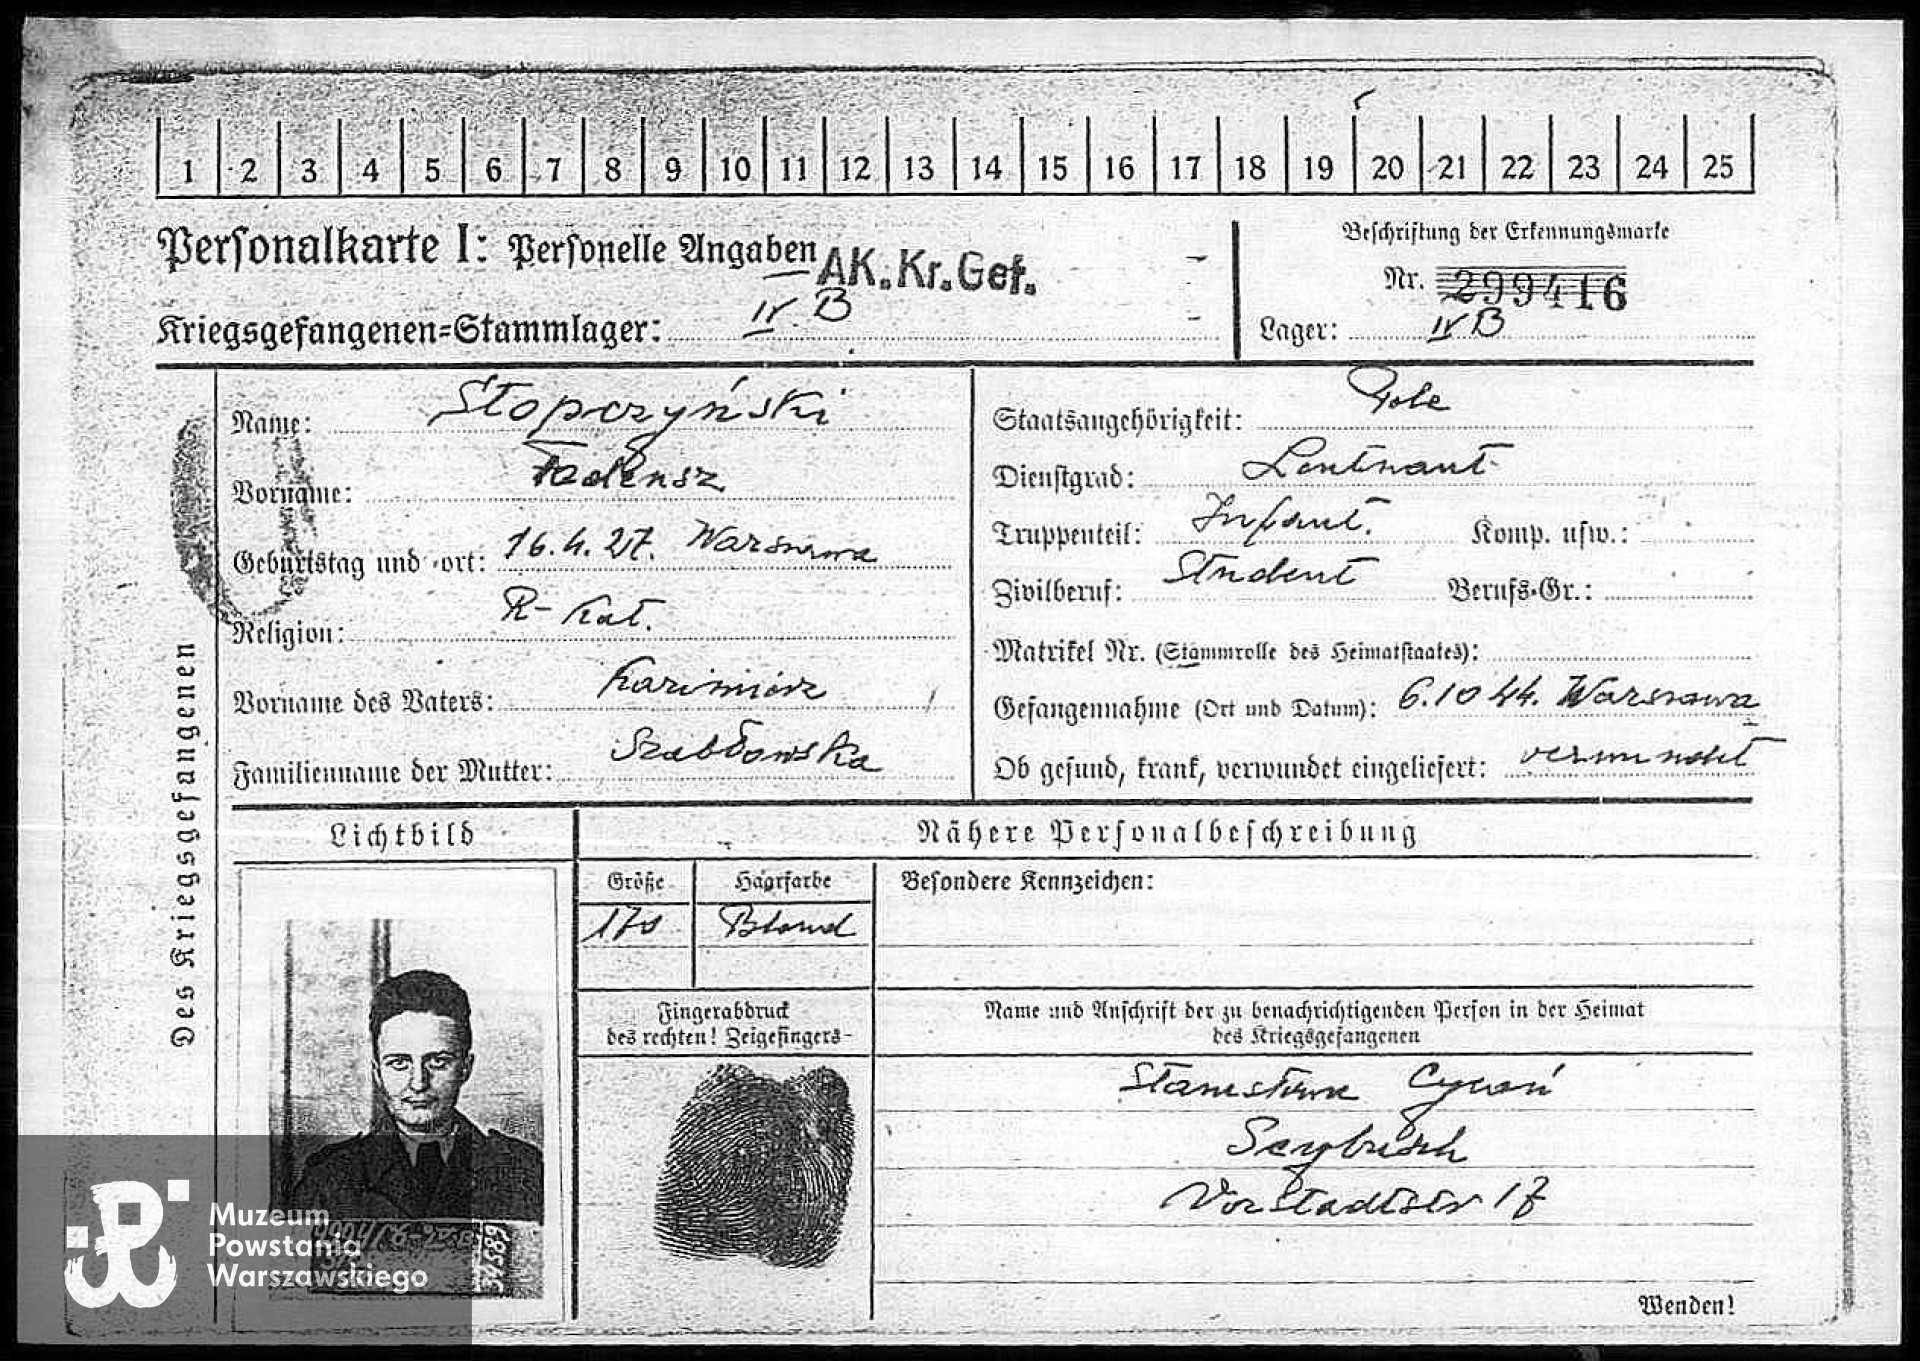 1 2 3 4 5 6 7 8 9 10 11 12 13 14 15 16 17 18 19 20 21 22 23 24 25
Personalkarte I: Personelle Angaben
AK. Kr. Gef.
Kriegsgefangenen-Stammlager: IV B
Beschriftung der Erkennungsmarke
Nr. 299416
Lager: IV B
Des Kriegsgefangenen
Name: Słopczyński
Vorname: Tadeusz
Geburtstag und -ort: 16.4.27. Warszawa
Religion: R-Kat.
Vorname des Vaters: Kazimierz
Familienname der Mutter: Szabłowska
Staatsangehörigkeit: Pole
Dienstgrad: Leutnant
Truppenteil: Infant. Komp. usw.:
Zivilberuf: Student Berufs-Gr.:
Matrikel Nr. (Stammrolle des Heimatstaates):
Gefangennahme (Ort und Datum): 6.10 44. Warszawa
Ob gesund, krank, verwundet eingeliefert: verwundet
Lichtbild
Nähere Personalbeschreibung
Größe Haarfarbe Besondere Kennzeichen:
170 Blond
Fingerabdruck
des rechten! Zeigefingers
Name und Anschrift der zu benachrichtigenden Person in der Heimat
des Kriegsgefangenen
Stanisława Cycoń
Saybusch
Vorstadtstr 17
Wenden!
Muzeum
Powstania
Warszawskiego